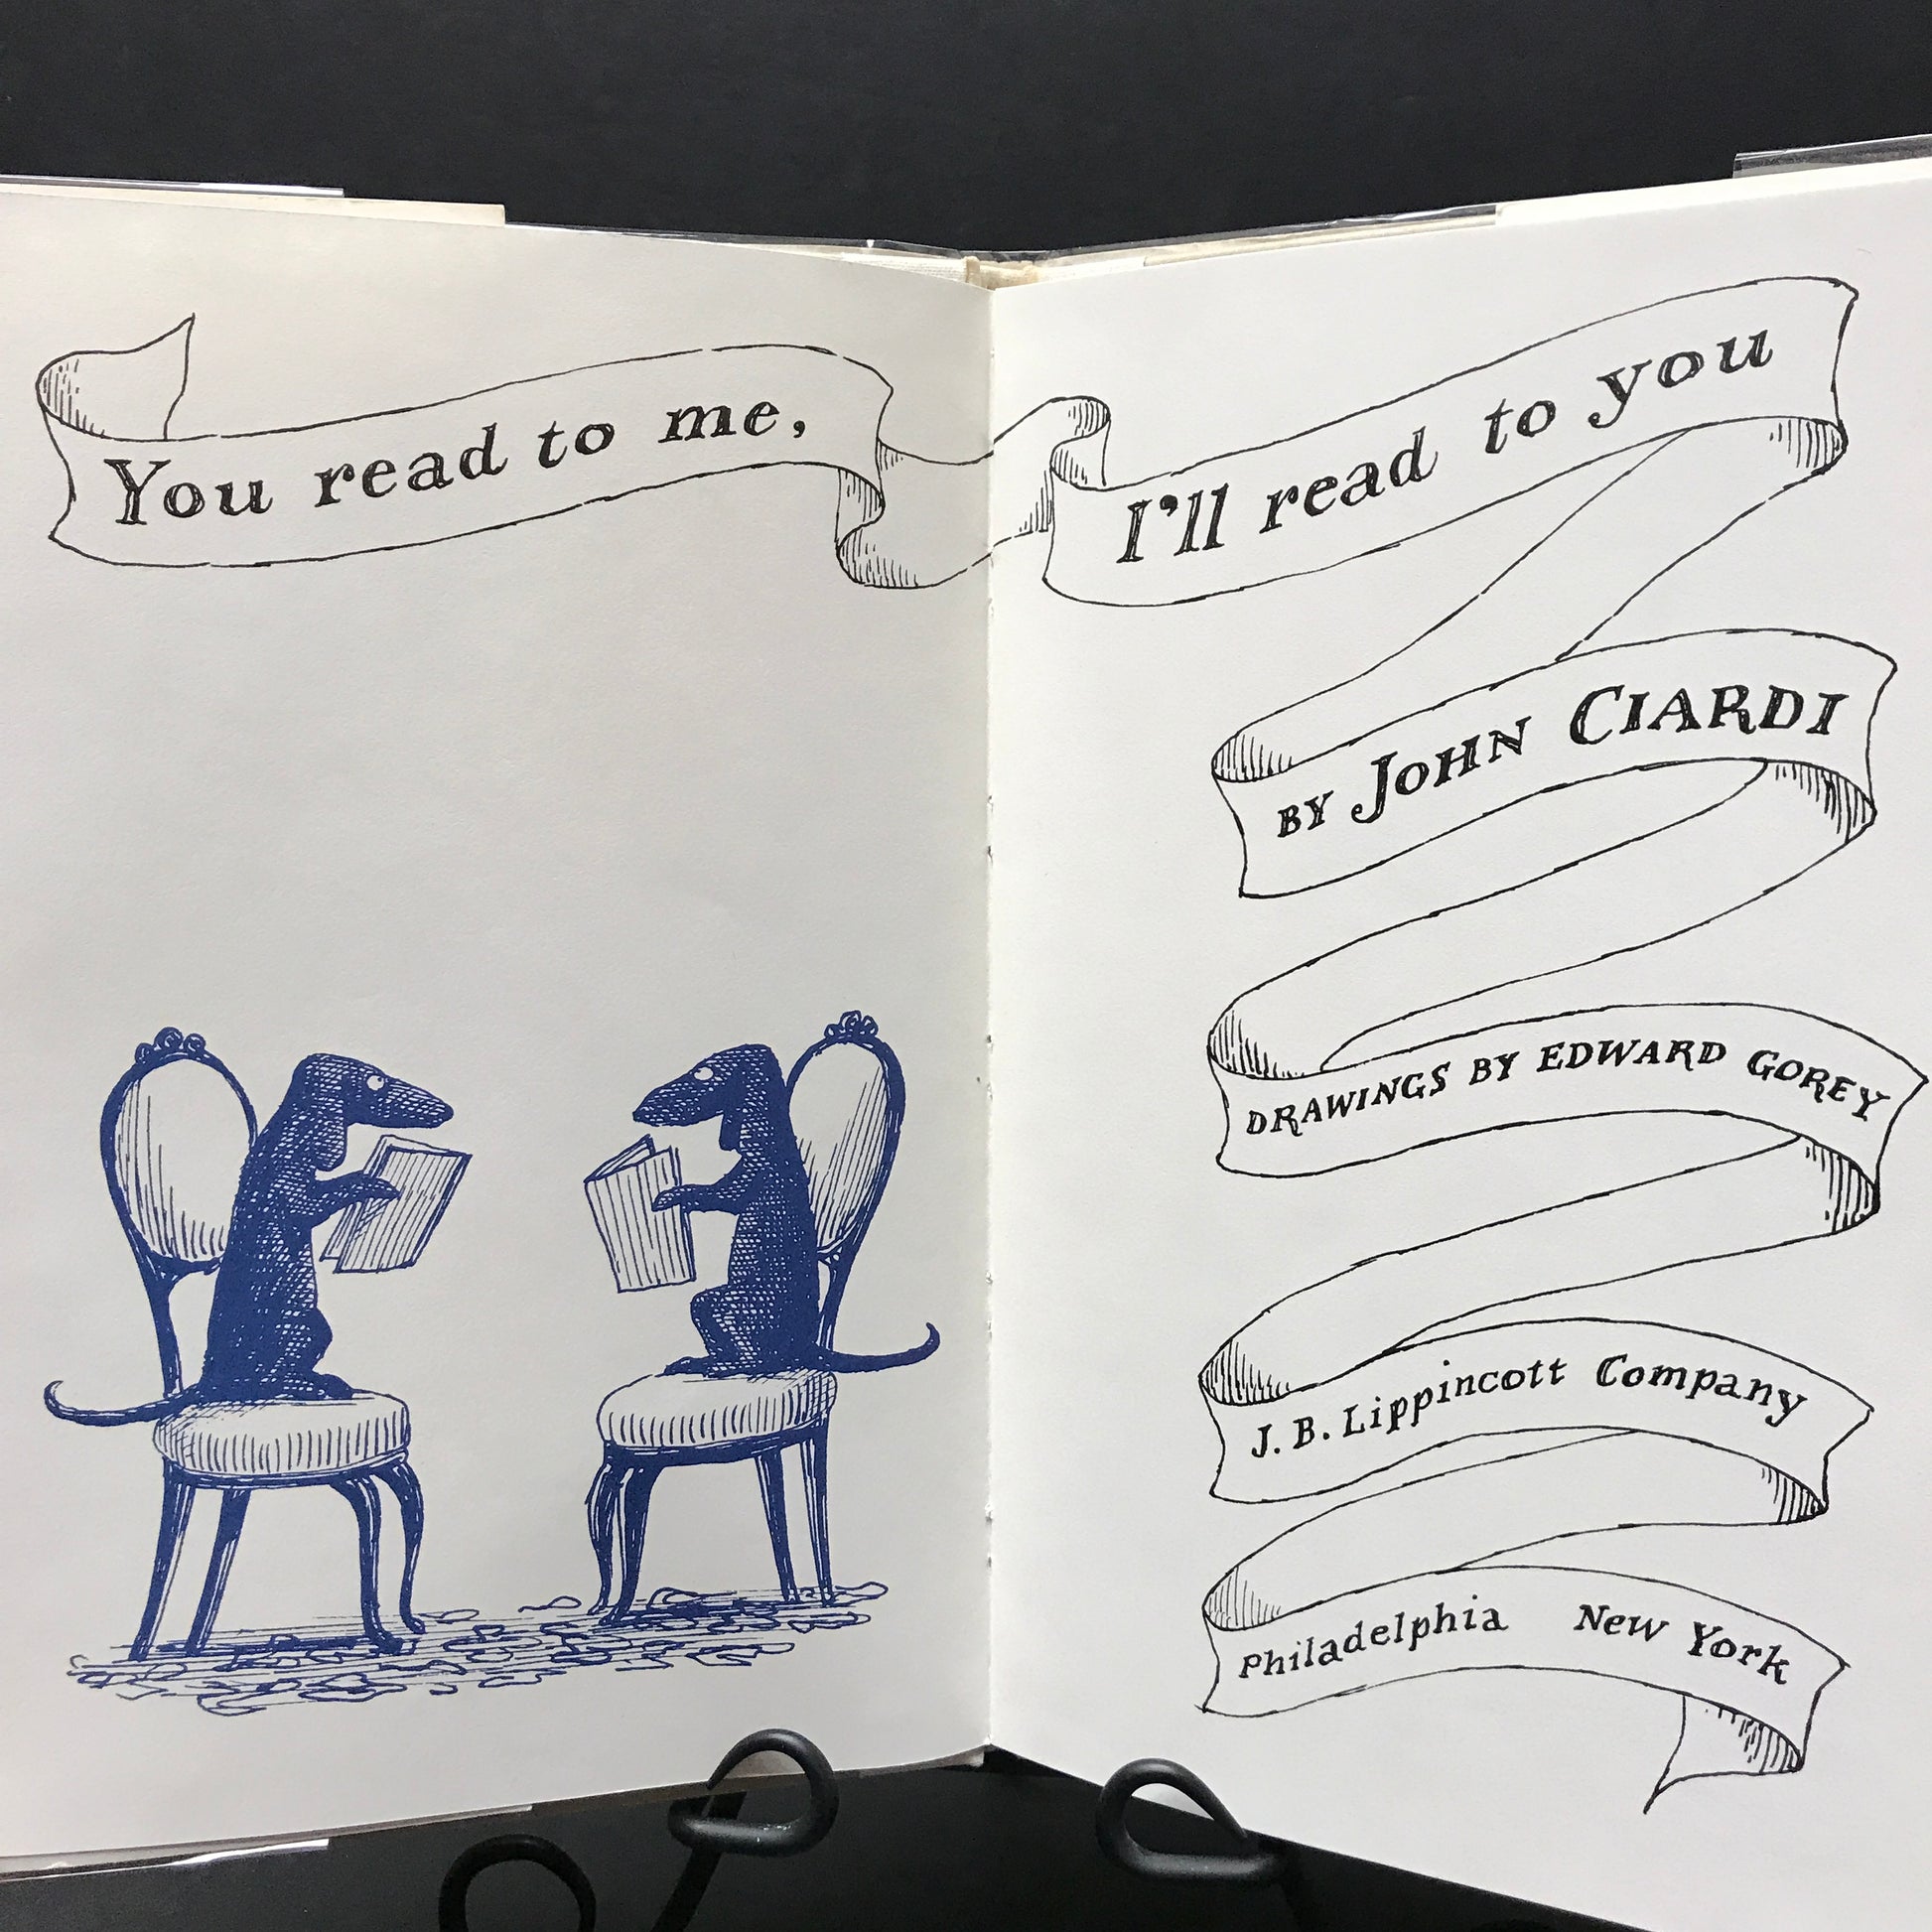 You read to me,
I'll read to you
BY JOHN CIARDI
DRAWINGS BY EDWARD GOREY
J. B. Lippincott Company
Philadelphia New York